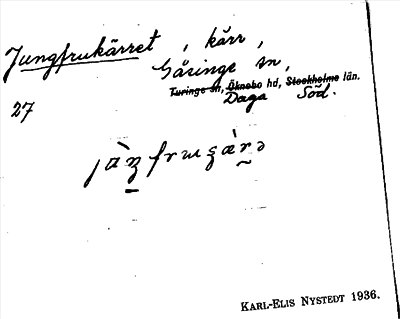 Jungfrukärret, kärr,
Gåsinge sn,
Turinge sn, Öknebo hd, Stockholms län.
Daga Söd.
27
KARL-ELIS NYSTEDT 1936.